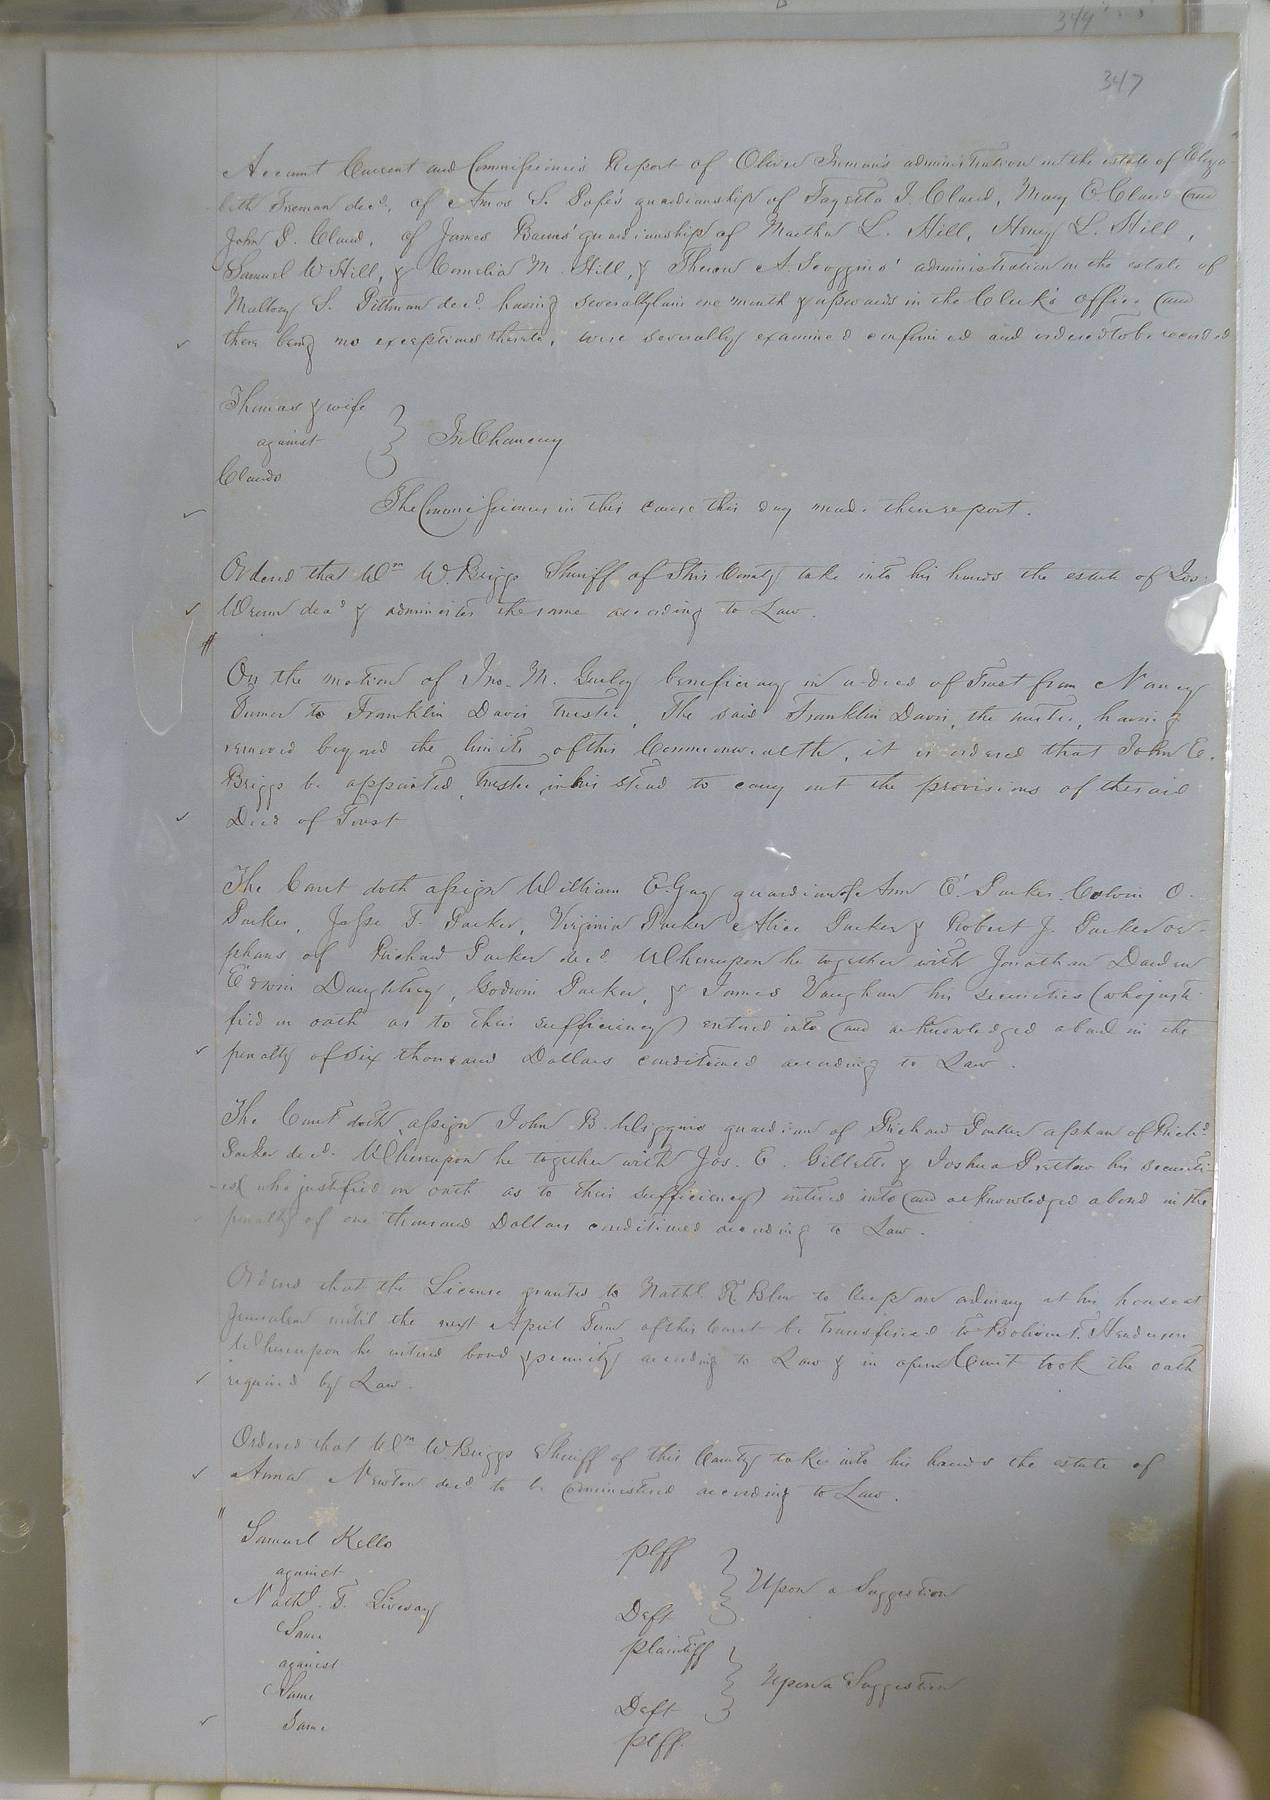 347
Account Current and Commissioner's Report of Oliver Inman's administration on the estate of Eliza-
beth Inman decd, of Amos S. Pope's guardianship of Fayetta J. Claud, Mary E. Claud and
John P. Claud, of James Barnes' guardianship of Martha L. Hill, Henry L. Hill,
Samuel W Hill, & Cornelia M. Hill, & Theron A. Scoggins' administration on the estate of
Mallory S. Pittman decd. having severally lain one month & upwards in the Clerk's office and
there being no exceptions thereto, were severally examined confirmed and ordered to be recorded
Thomas & wife
against
Clauds
In Chancery
The Commissioners in this cause this day made their report.
Ordered that Wm W. Briggs Sheriff of this County take into his hands the estate of Jos.
decd & administer the same according to Law.
On the motion of Jno. M. Gurley beneficiary in a deed of Trust from Nancy
Turner to Franklin Davis trustee, The said Franklin Davis, the trustee, having
removed beyond the limits of this Commonwealth, it is ordered that John E.
Briggs be appointed trustee in his stead to carry out the provisions of the said
Deed of Trust
The Court doth assign William E. Gay guardian of Ann E. Parker, Colvin O.
Parker, Jesse T. Parker, Virginia Parker Alice Parker & Robert J. Parker or-
phans of Richard Parker decd. Whereupon he together with Jonathan Darden
Edwin Daughtrey, Godwin Parker, & James Vaughan his securities (who justi-
fied on oath as to their sufficiency) entered into and acknowledged a bond in the
penalty of six thousand Dollars conditioned according to Law.
The Court doth assign John B. Wiggins guardian of Richard Parker orphan of Richd
Parker decd. Whereupon he together with Jos. E. Gillette & Joshua Pretlow his securiti-
es (who justified on oath as to their sufficiency) entered into and acknowledged a bond in the
penalty of one thousand Dollars conditioned according to Law.
Ordered that the License granted to Nathl. R. Blow to keep an ordinary at his house at
Jerusalem until the next April Term of this Court be transferred to T. Henderson
Whereupon he entered bond & security according to Law & in open Court took the oath
required by Law.
Ordered that Wm W. Briggs Sheriff of this County take into his hands the estate of
Anna Newton decd to be administered according to Law.
Samuel Kello plff
against
Upon a Suggestion
Nathl. T. Livesay Deft
Same plaintiff
against
Upon a Suggestion
Same Deft
Same plff.